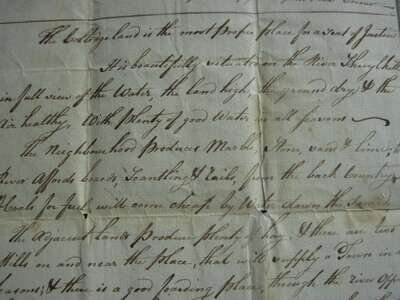 The College land is the most proper place for a seat of Justice
It is beautifully situate on the River Schuylkill
in full view of the Water, the land high, the ground dry, & the
Air healthy, With plenty of good Water in all seasons
The Neighbourhood Produces Marble, Stone, sand & lime, &
River Affords boards, Scantling & rails, from the back Country
for fuel, will come cheap by Water down the
The Adjacent lands Produce plenty of hay & there are two
Mills on and near the place, that will supply a Town in
seasons, & there is a good foarding place, through the river opp